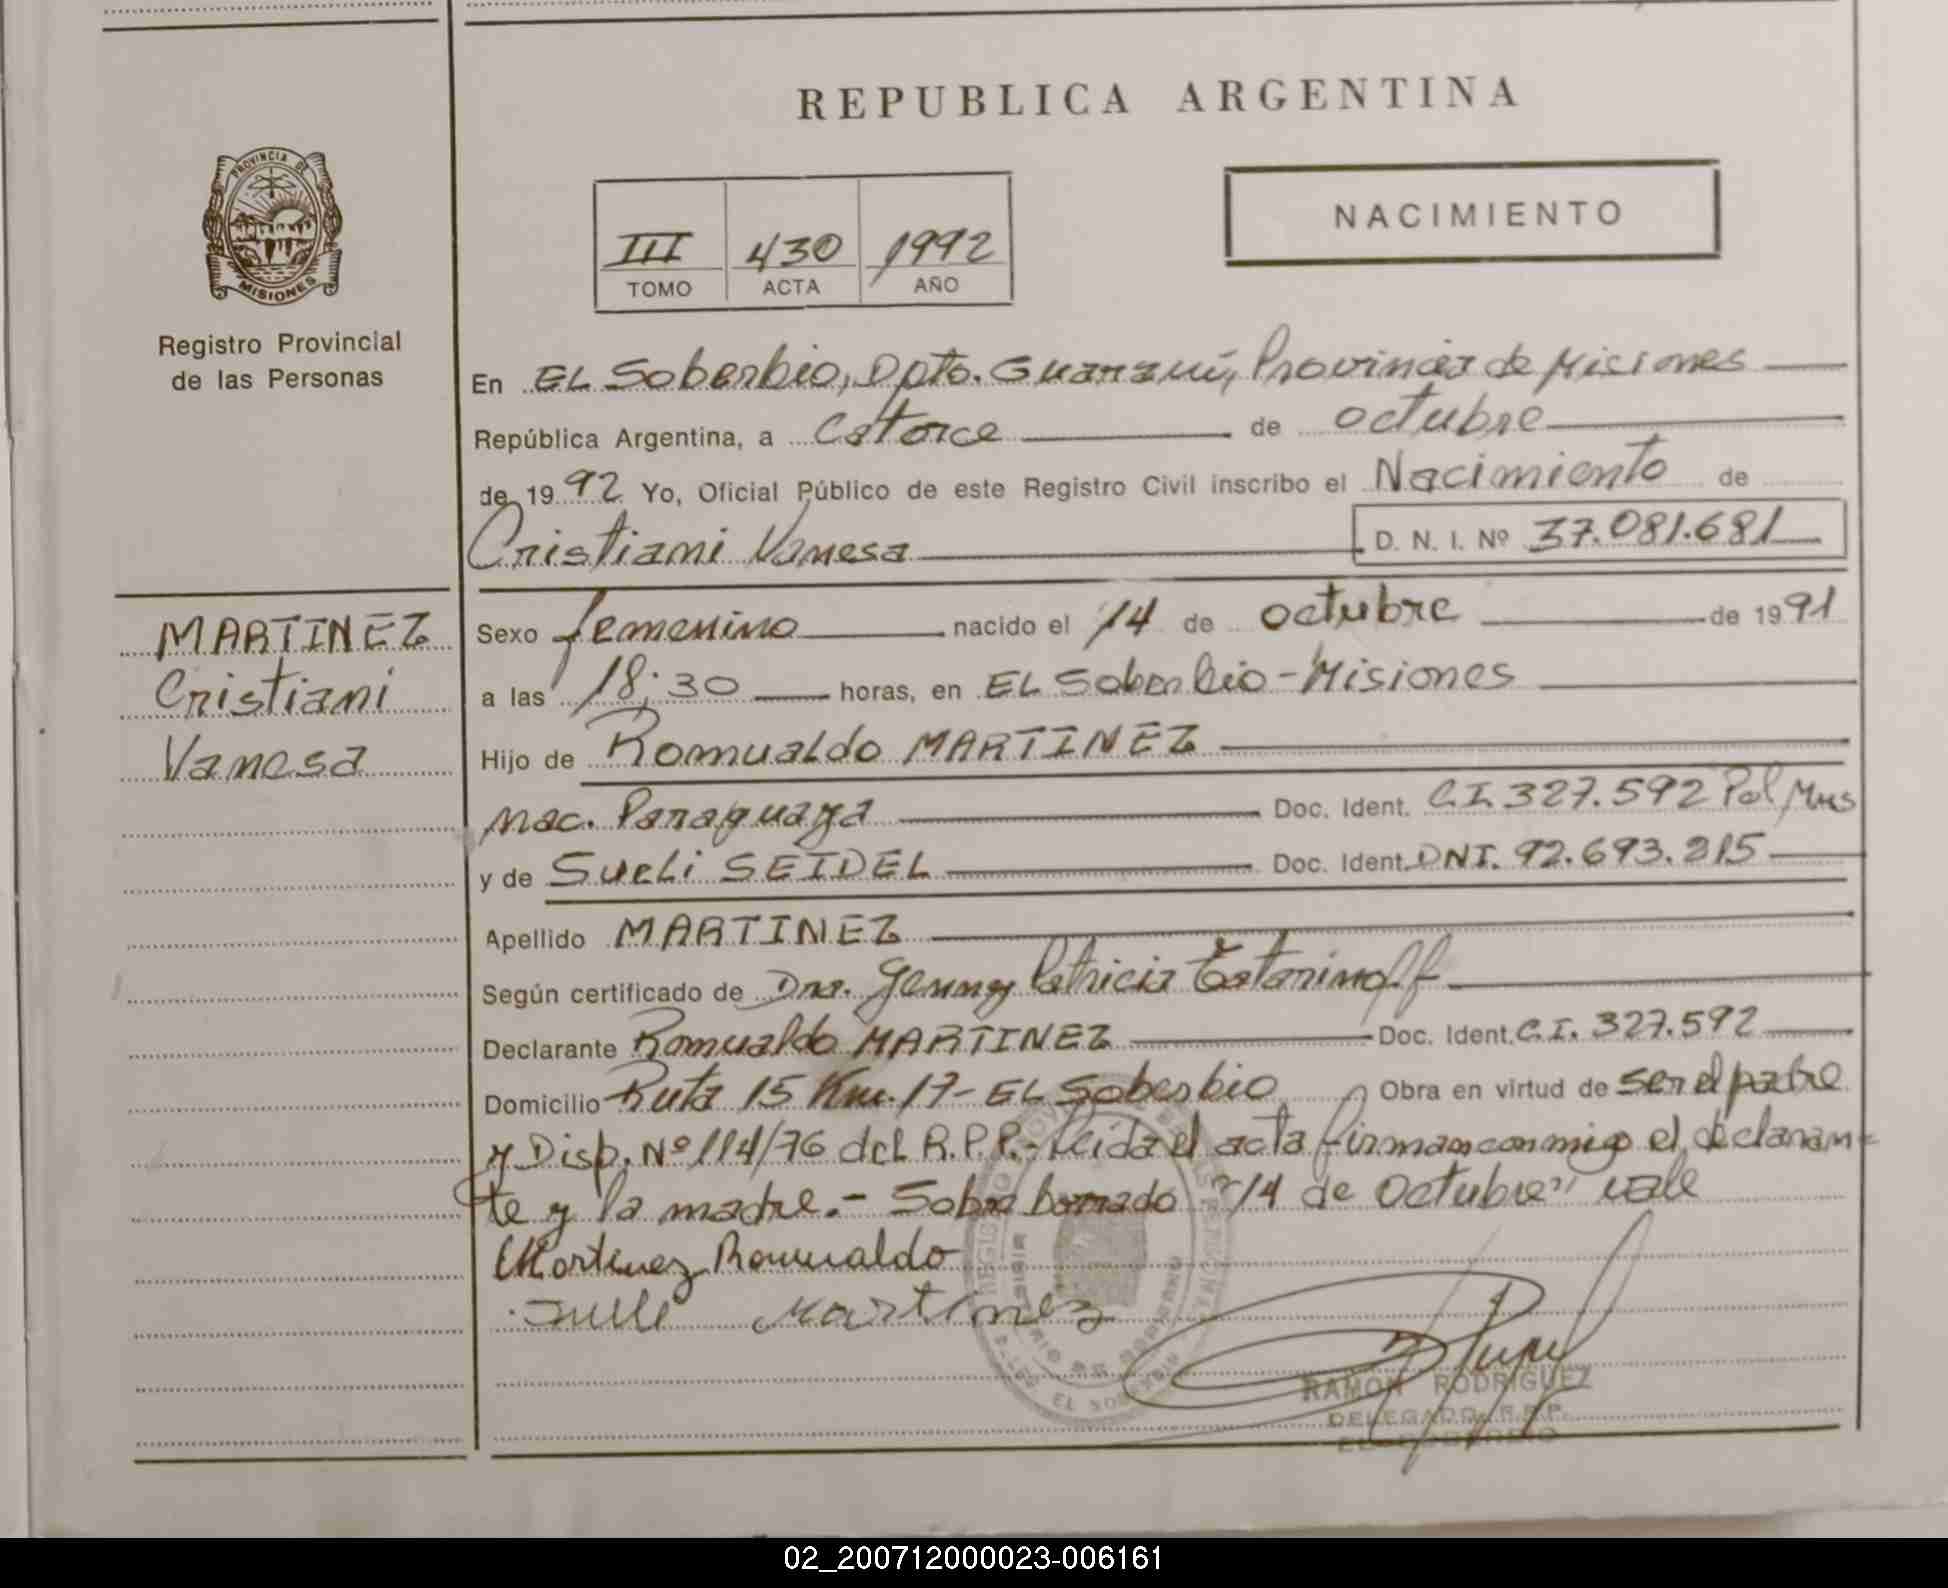 REPUBLICA ARGENTINA
PROVINCIA DE
MISIONES
Registro Provincial
de las Personas
III 430 1992
TOMO ACTA AÑO
NACIMIENTO
En EL Soberbio, Dpto. Guaraní, Provincia de Misiones
República Argentina, a Catorce de octubre
de 1992 Yo, Oficial Público de este Registro Civil inscribo el Nacimiento de
Cristiani Vanesa D. N. I. Nº 37.081.681
MARTINEZ
Cristiani
Vanesa
Sexo femenino nacido el 14 de octubre de 1991
a las 18:30 horas, en EL Soberbio - Misiones
Hijo de Romualdo MARTINEZ
nac. Paraguaya Doc. Ident. C.I. 327.592 Pol Mnes
y de Sueli SEIDEL Doc. Ident. DNI. 92.693.215
Apellido MARTINEZ
Según certificado de Dra. Genny Patricia
Declarante Romualdo MARTINEZ Doc. Ident. C.I. 327.592
Domicilio Ruta 15 Km. 17 - EL Soberbio Obra en virtud de ser el padre
y Disp. Nº 114/76 del R.P.P.- Leida el acta firman conmigo el declaran-
te y la madre.- Sobre borrado "14 de Octubre" vale
Martinez Romualdo
Martinez
RAMON RODRIGUEZ
DELEGADO R.P.P.
EL SOBERBIO
02_200712000023-006161